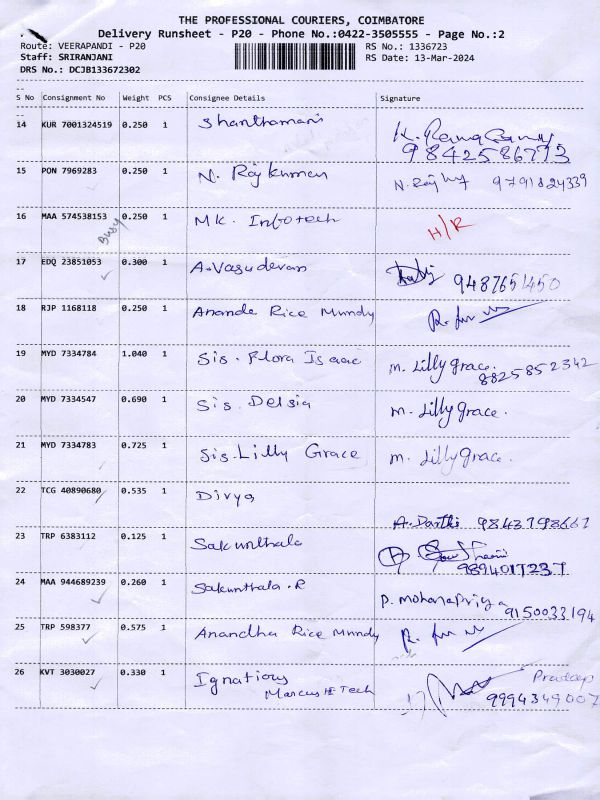 THE PROFESSIONAL COURIERS, COIMBATORE
Delivery Runsheet - P20 - Phone No.:0422-3505555 - Page No.:2
Route: VEERAPANDI - P20
RS No.: 1336723
Staff: SRIRANJANI
RS Date: 13-Mar-2024
DRS No.: DCJB133672302
S No Consignment No Weight PCS Consignee Details Signature
14 KUR 7001324519 0.250 1 Shanthamani
9842586773
15 PON 7969283 0.250 1 N. Rajkumar N. Raj 9791824339
16 MAA 574538153 0.250 1 MK. Infotech H/R
Busy
17 EDQ 23851053 0.300 1 A.Vasudevan 9487651450
18 RJP 1168118 0.250 1 Ananda Rice Mundy
19 MYD 7334784 1.040 1 Sis. Flora Isaac M. Lilly grace.
8825852342
20 MYD 7334547 0.690 1 Sis. Delsia M. Lilly grace.
21 MYD 7334783 0.725 1 Sis. Lilly Grace M. Lilly grace.
22 TCG 40890680 0.535 1 Divya
A. 9843798661
23 TRP 6383112 0.125 1 Sakunthala
9894017237
24 MAA 944689239 0.260 1 Sakunthala.R P. Mohanapriya
9150033194
25 TRP 598377 0.575 1 Anandha Rice Mundy
26 KVT 3030027 0.330 1 Ignatious Pradeep
Marcus Hi Tech 9994349007